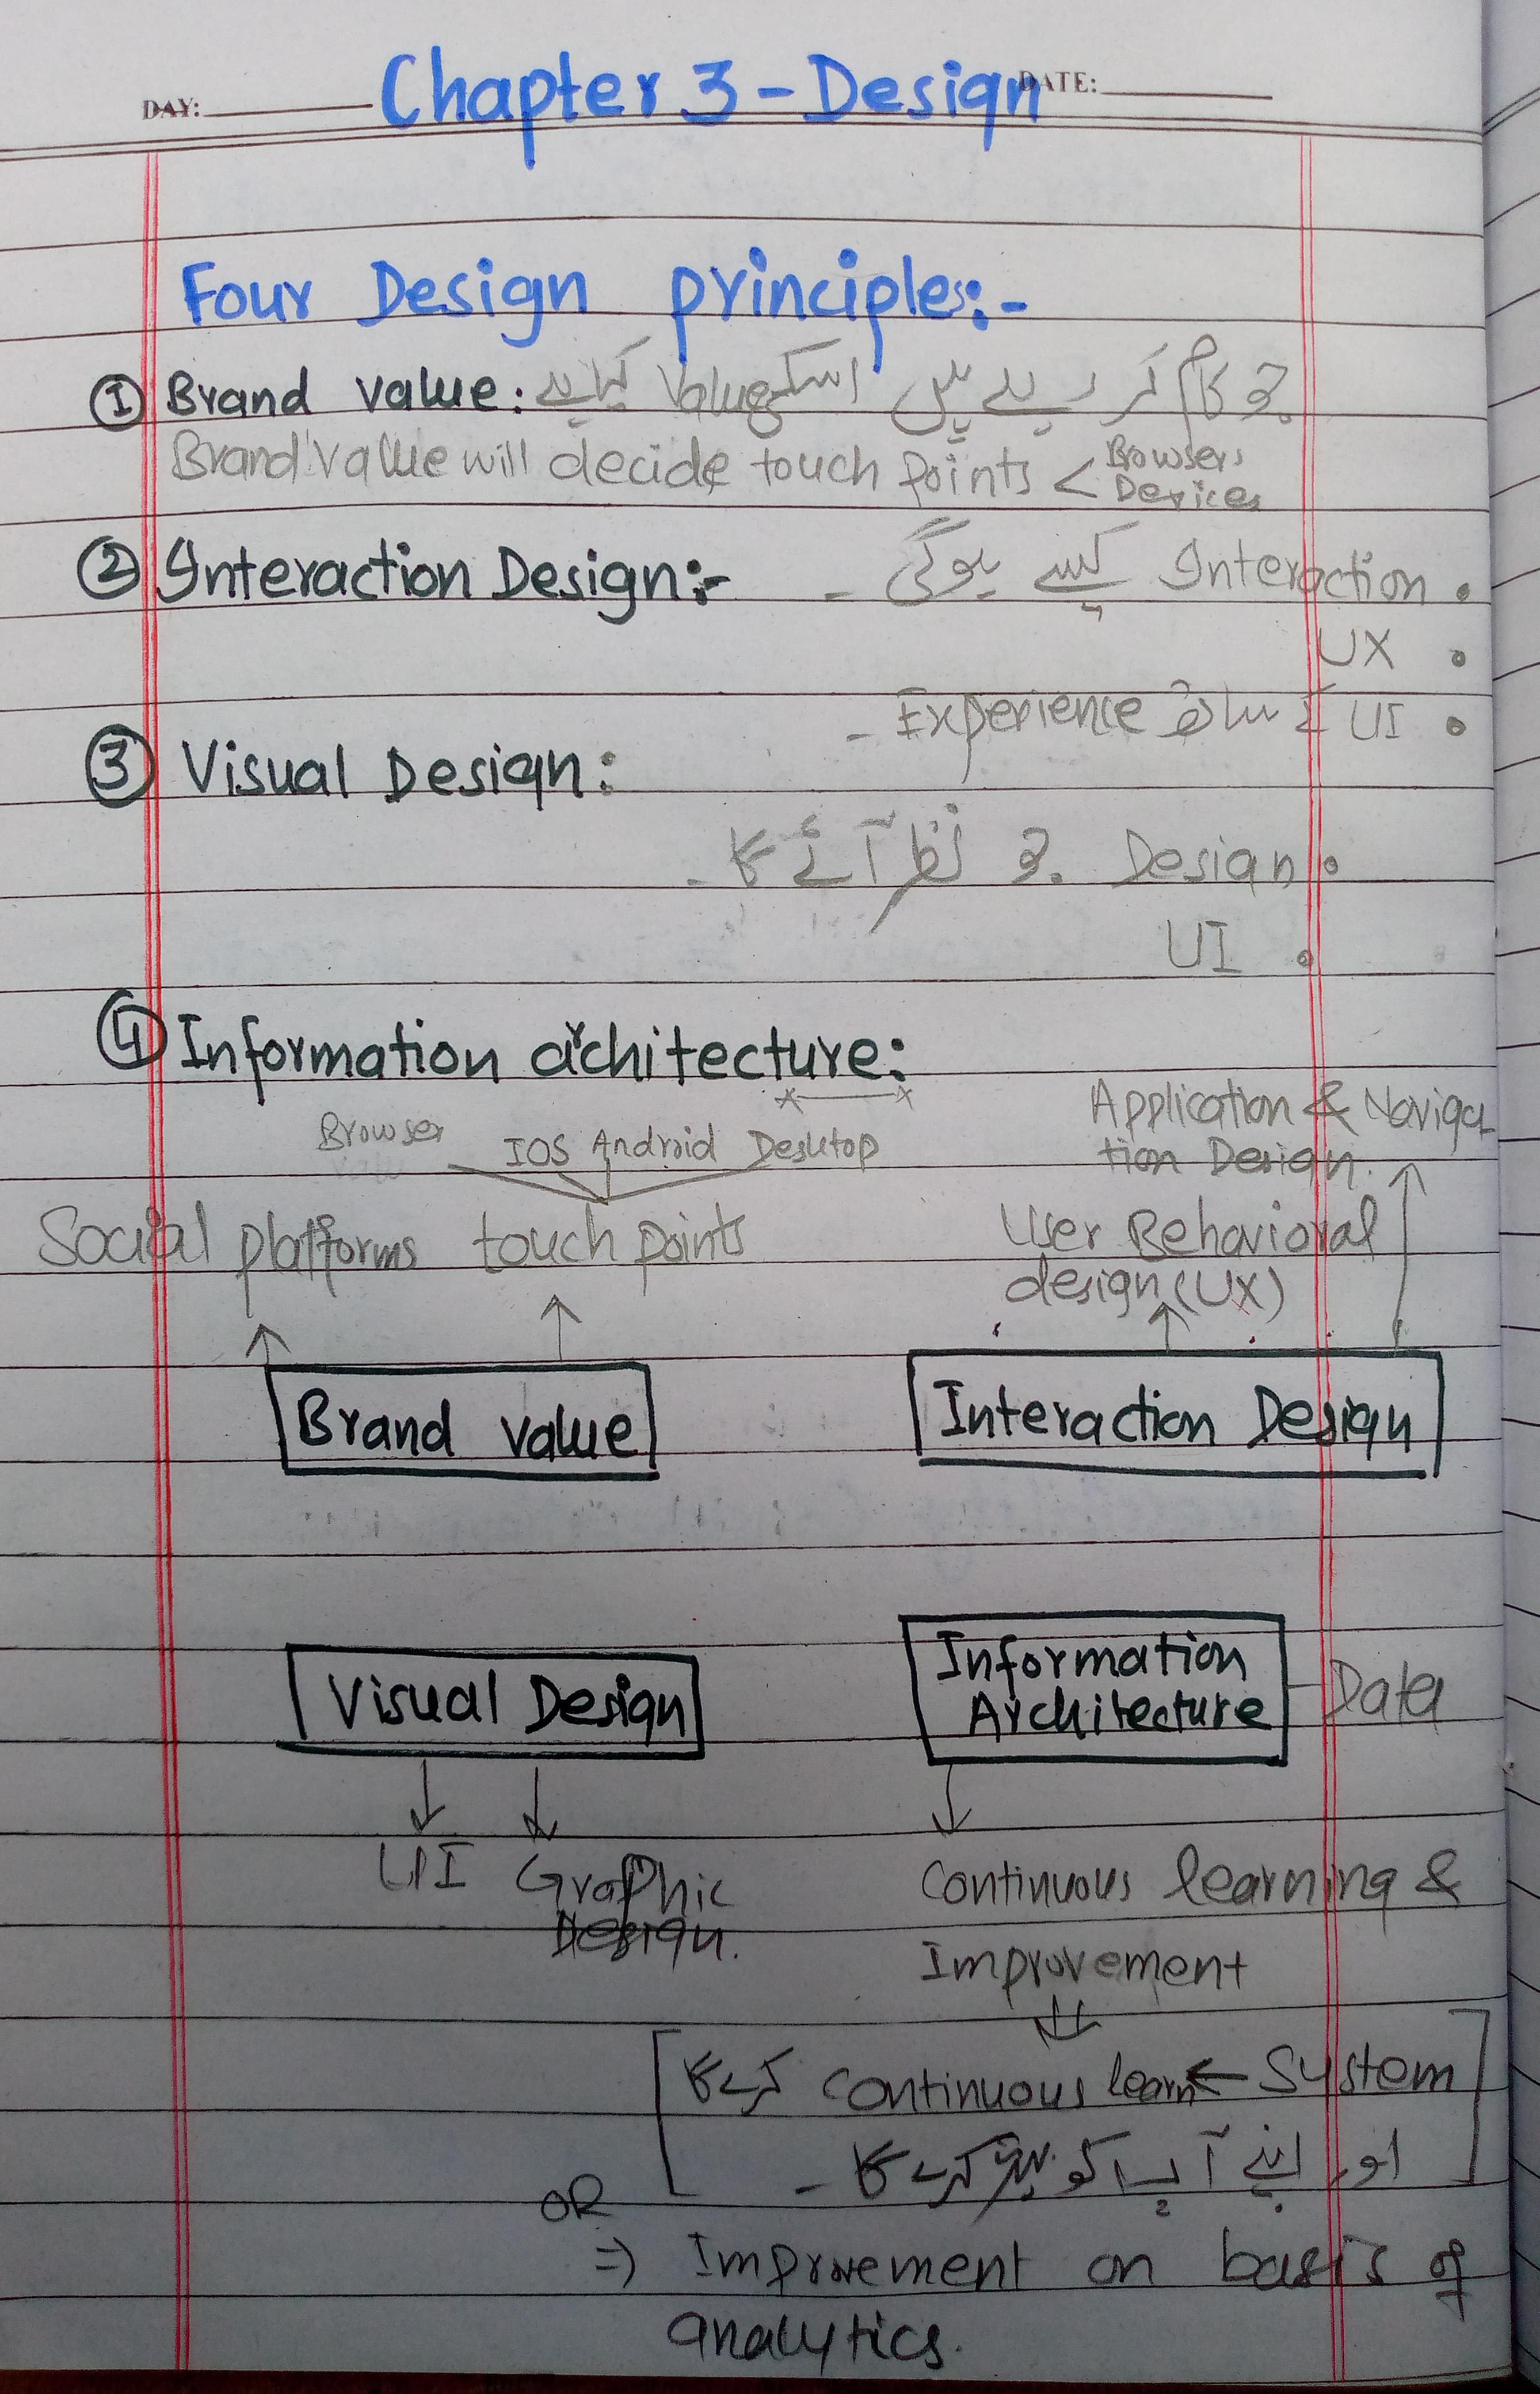 DAY: DATE:
Chapter 3 - Design
Four Design principles:-
① Brand value: جو کام کر رہے ہیں اسکی Value کیا ہے
Brand value will decide touch points < Browsers Devices
② Interaction Design:- • Interaction کیسے ہوگی -
• UX
• UI کے ساتھ Experience -
③ Visual Design:
• Design جو نظر آئے گا -
• UI
④ Information architecture:
Browser IOS Android Desktop
Social platforms touch points
Application & Naviga
tion Design.
User Behavioral
design (UX)
Brand value
Interaction Design
Visual Design
Information
Architecture
Data
UI Graphic
Design.
Continuous learning &
Improvement
System ← continuous learn کرے گا
اور اپنے آپ کو بہتر کرے گا -
OR
⇒ Improvement on basis of
analytics.